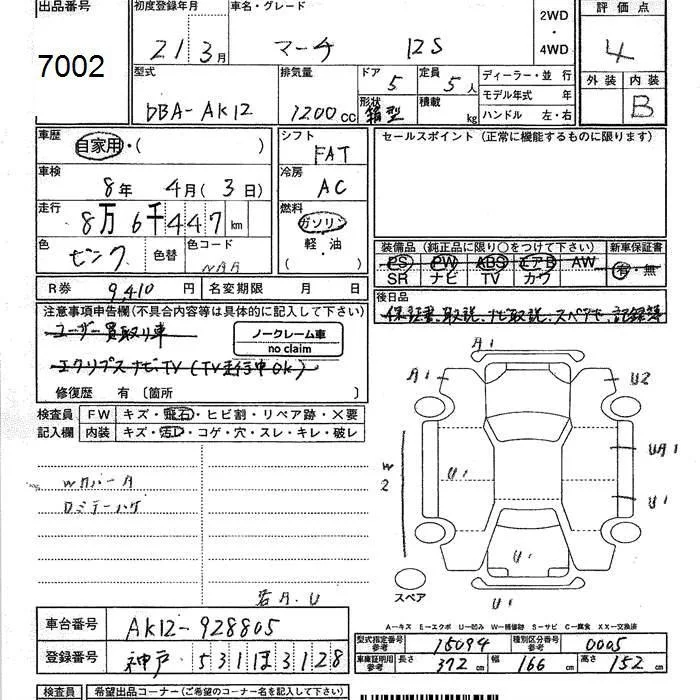 出品番号
7002
初度登録年月
21 3月
車名・グレード
マーチ 12S
2WD
・
4WD
評価点
4
外装 内装
B
型式
DBA-AK12
排気量
1200cc
ドア
5
形状
箱型
定員
5人
積載
kg
ディーラー・並 行
モデル年式 年
ハンドル 左・右
車歴
自家用・( )
シフト
FAT
セールスポイント (正常に機能するものに限ります)
車検
8年 4月(3日)
冷房
AC
走行
8万6千447km
燃料
ガソリン
軽・油
( )
色
ピンク
色替
色コード
装備品 (純正品に限り○をつけて下さい)
新車保証書
PS PW ABS エアB AW
有・無
SR ナビ TV カワ
R券
9,410円
名変期限 月 日
後日品
保証書、取説、ナビ取説、スペアキー、記録簿
注意事項申告欄(不具合内容等は具体的に記入して下さい)
ユーザー買取り車
ノークレーム車
no claim
エクリプスナビTV(TV走行中OK)
修復歴 有 〔箇所 〕
検査員
記入欄
FW キズ・飛石・ヒビ割・リペア跡・×要
内装 キズ・汚レ・コゲ・穴・スレ・キレ・破レ
Wカバー
A1
A1
U2
UA1
U1
W2
U1
U1
U1
スペア
A-キズ E-エクボ U-凹み W-補修跡 S-サビ C-腐食 XX-交換済
車台番号
AK12-928805
登録番号
神戸 531 ほ 3128
型式指定番号
参考
15094
種別区分番号
参考
0005
車庫証明用
参考
長さ 372cm 幅 166cm 高さ 152cm
検査員
希望出品コーナー(ご希望のコーナー名を記入して下さい)